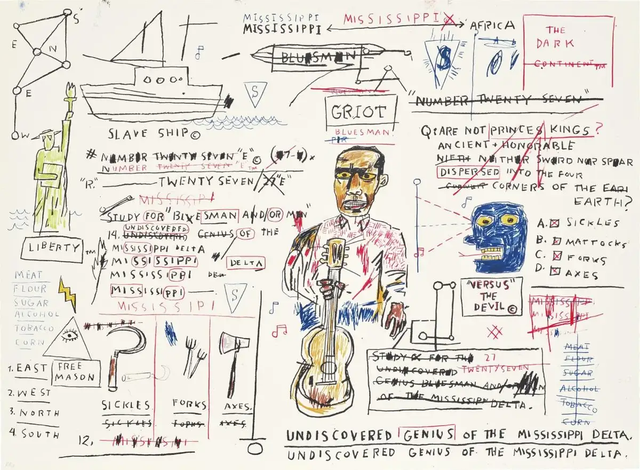 S
E
N
E
W
MISSISSIPPI
MISSISSIPPI
MISSISSIPPI
AFRICA
BLUESMAN
$
THE
DARK
CONTINENT
GRIOT
BLUESMAN
"NUMBER TWENTY SEVEN"
SLAVE SHIP©
# NUMBER TWENTY SEVEN "E" ©
NUMBER TWENTY SEVEN "E"
"R."
TWENTY SEVEN "E"
MISSISSIPPI
STUDY FOR BLUESMAN AND/OR MAN"
UNDISCOVERED
14. UNDISCOVERED GENIUS OF THE
MISSISSIPPI DELTA
MISSISSIPPI
DELTA
MISSISSIPPI
MISSISSIPPI
MISSISSIPPI
S
Q: ARE NOT PRINCES KINGS?
ANCIENT + HONORABLE
WITH NEITHER SWORD NOR SPEAR
DISPERSED INTO THE FOUR
CORNERS OF THE EARTH
EARTH?
A. SICKLES
B. MATTOCKS
C. FORKS
D. AXES
"VERSUS"
THE
DEVIL©
MISSISSIPPI
LIBERTY
TM
MEAT
FLOUR
SUGAR
ALCOHOL
TOBACCO
CORN
FREE
MASON
1. EAST
2. WEST
3. NORTH
4. SOUTH
SICKLES
FORKS
AXES.
SICKLES
FORKS
AXES
12,
MISSISSIPPI
STUDY FOR THE 27
UNDISCOVERED TWENTYSEVEN
GENIUS BLUESMAN AND/OR MAN
OF THE MISSISSIPPI DELTA.
MEAT
FLOUR
SUGAR
ALCOHOL
TOBACCO
CORN
UNDISCOVERED GENIUS OF THE MISSISSIPPI DELTA.
UNDISCOVERED GENIUS OF THE MISSISSIPPI DELTA.